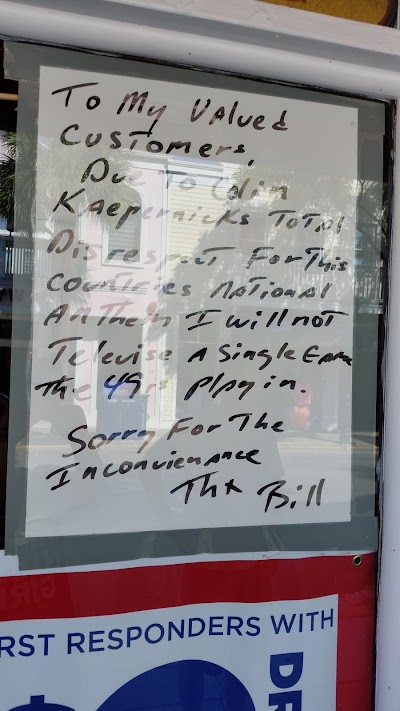 To My Valued
Customers,
Due To Colin
Kaepernicks Total
Disrespect For This
Countries National
Anthem I will not
Televise A Single Game
The 49rs play in.
Sorry For The
Inconvienance
Thx Bill
RST RESPONDERS WITH
DR